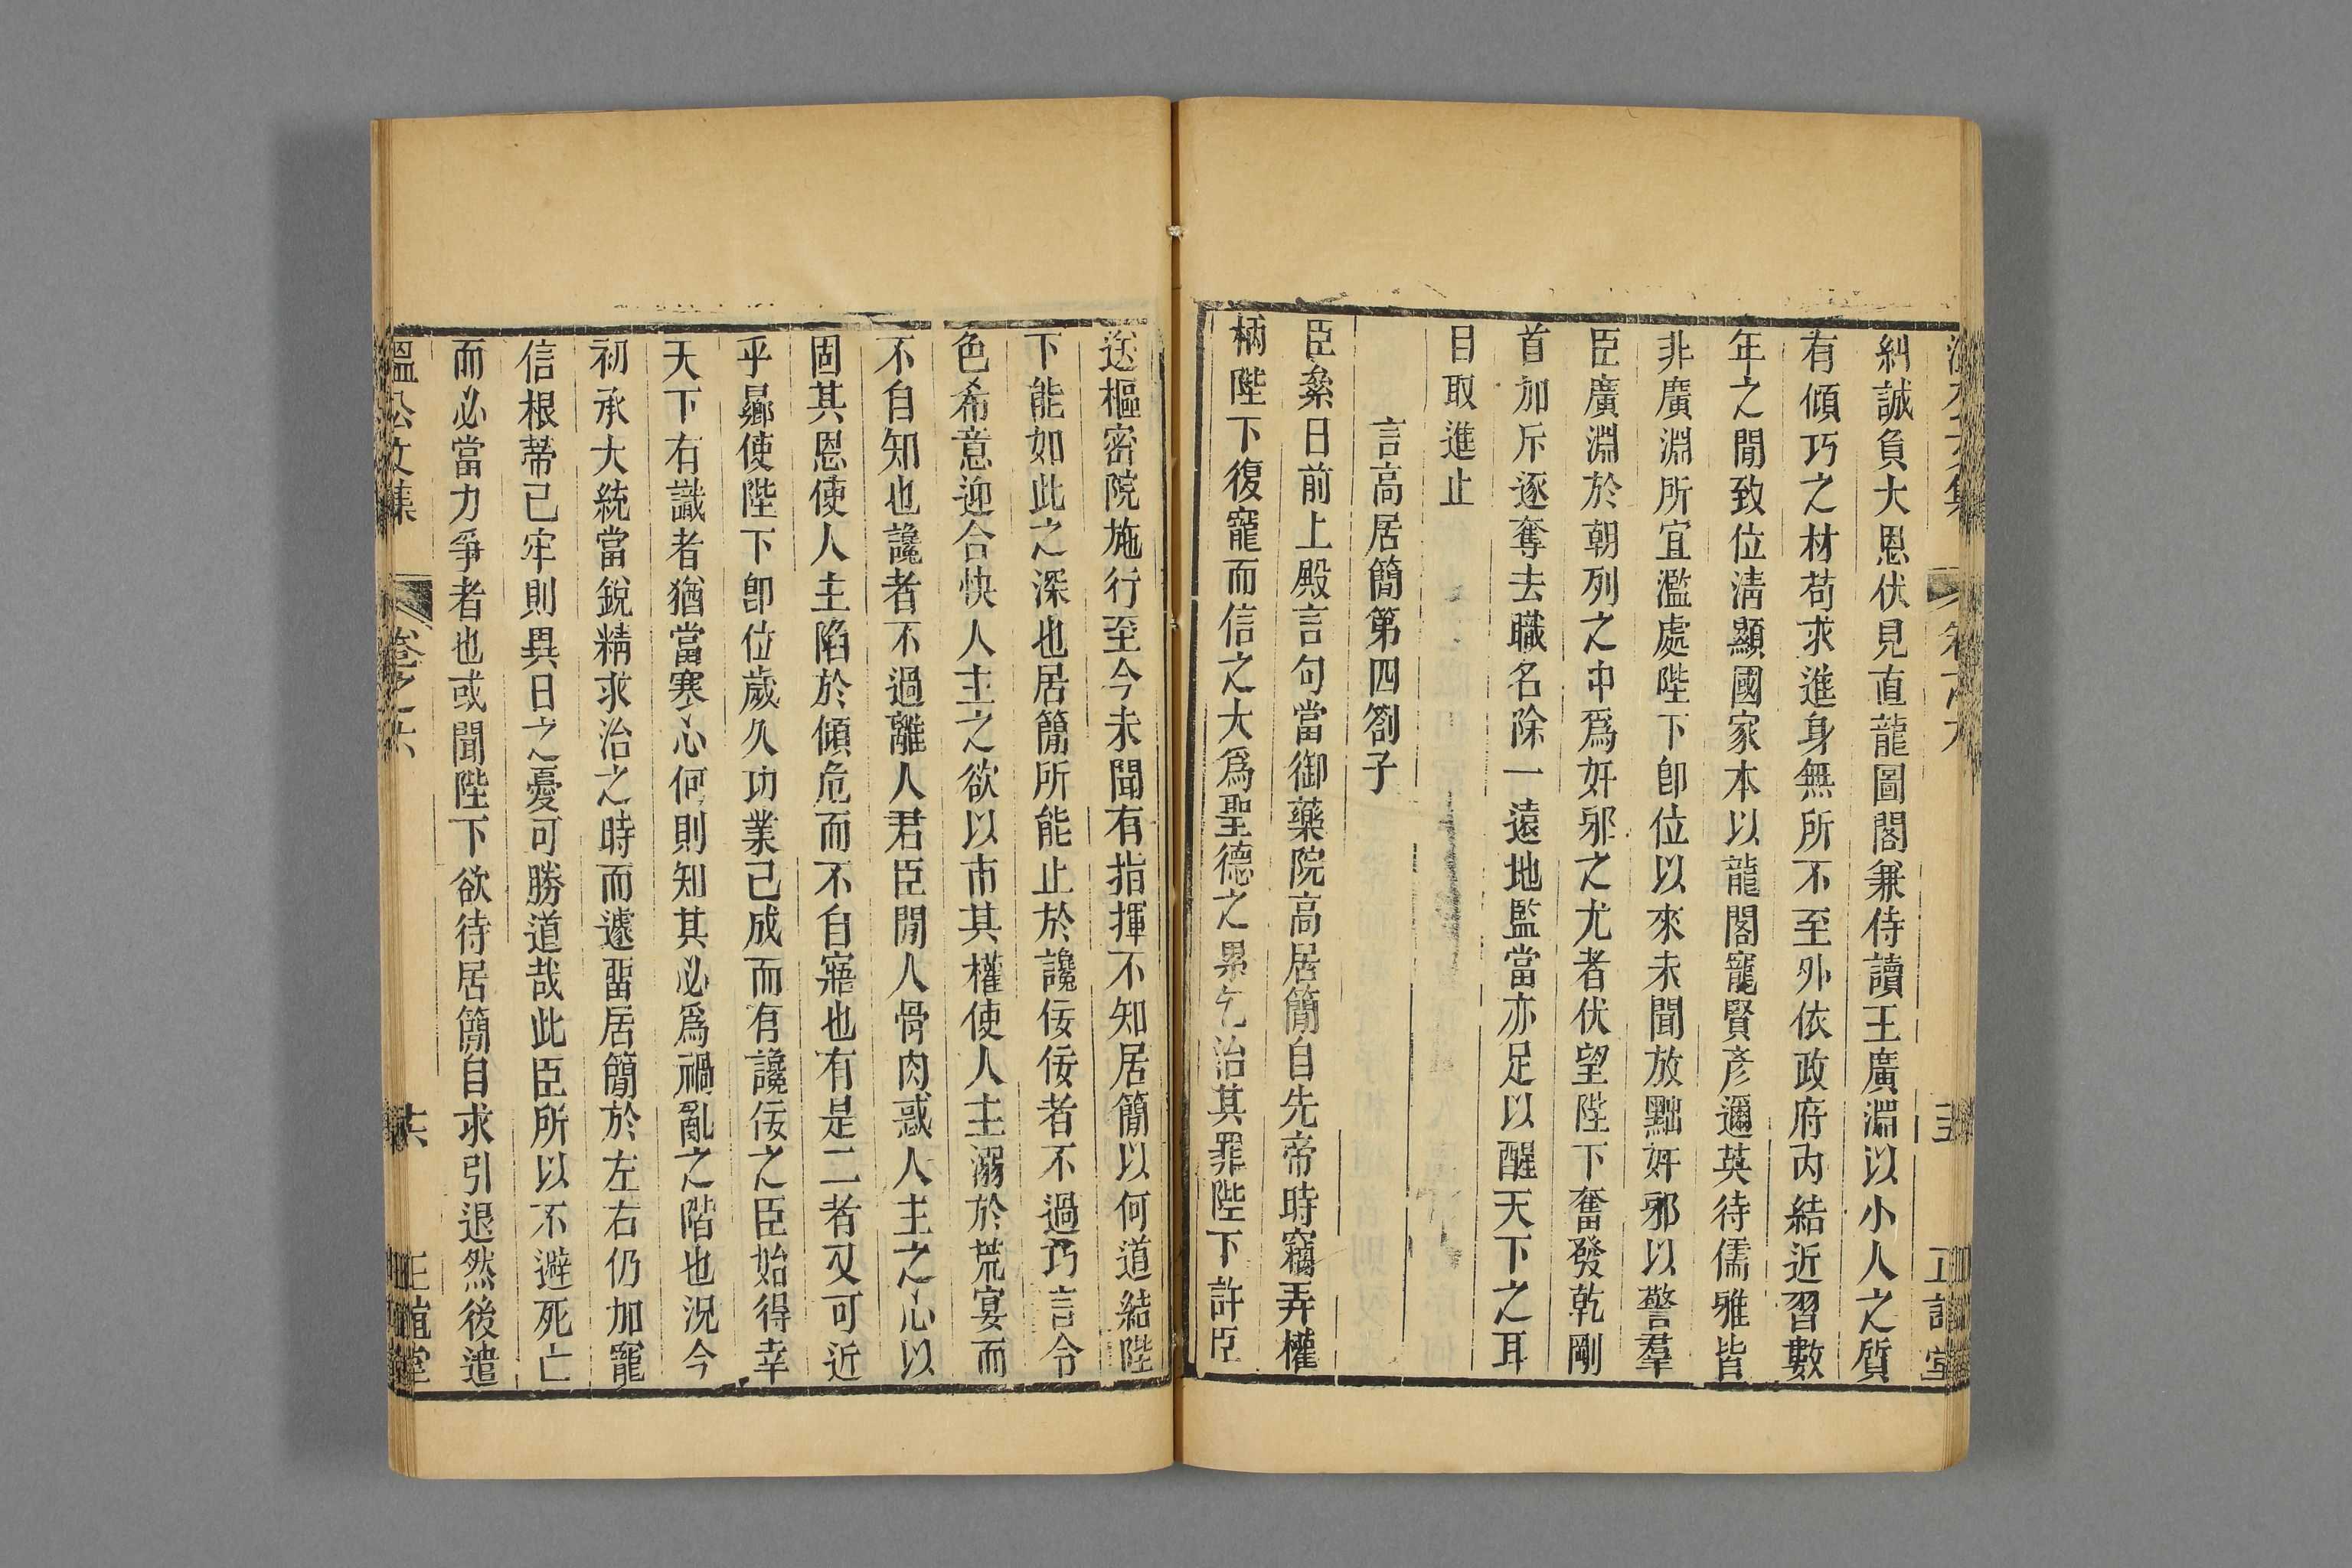 糾誠負大恩伏見直龍圖閣兼侍讀王廣淵以小人之質
有傾巧之材苟求進身無所不至外依政府內結近習數
年之間致位清顯國家本以龍閣寵賢彥邇英待儒雅皆
非廣淵所宜濫處陛下卽位以來未聞放黜奸邪以警羣
臣廣淵於朝列之中爲奸邪之尤者伏望陛下奮發乾剛
首加斥逐奪去職名除一遠地監當亦足以醒天下之耳
目取進止
言高居簡第四劄子
臣絫日前上殿言句當御藥院高居簡自先帝時竊弄權
柄陛下復寵而信之大爲聖德之累乞治其罪陛下許臣
送樞密院施行至今未聞有指揮不知居簡以何道結陛
下能如此之深也居簡所能止於讒佞佞者不過巧言令
色希意迎合快人主之欲以市其權使人主溺於荒宴而
不自知也讒者不過離人君臣閒人骨肉惑人主之心以
固其恩使人主陷於傾危而不自寤也有是二者又可近
乎曏使陛下卽位歲久功業已成而有讒佞之臣始得幸
天下有識者猶當寒心何則知其必爲禍亂之階也況今
初承大統當銳精求治之時而遽畱居簡於左右仍加寵
信根蔕已牢則異日之憂可勝道哉此臣所以不避死亡
而必當力爭者也或聞陛下欲待居簡自求引退然後遣
溫公文集 卷之六 共 正誼堂